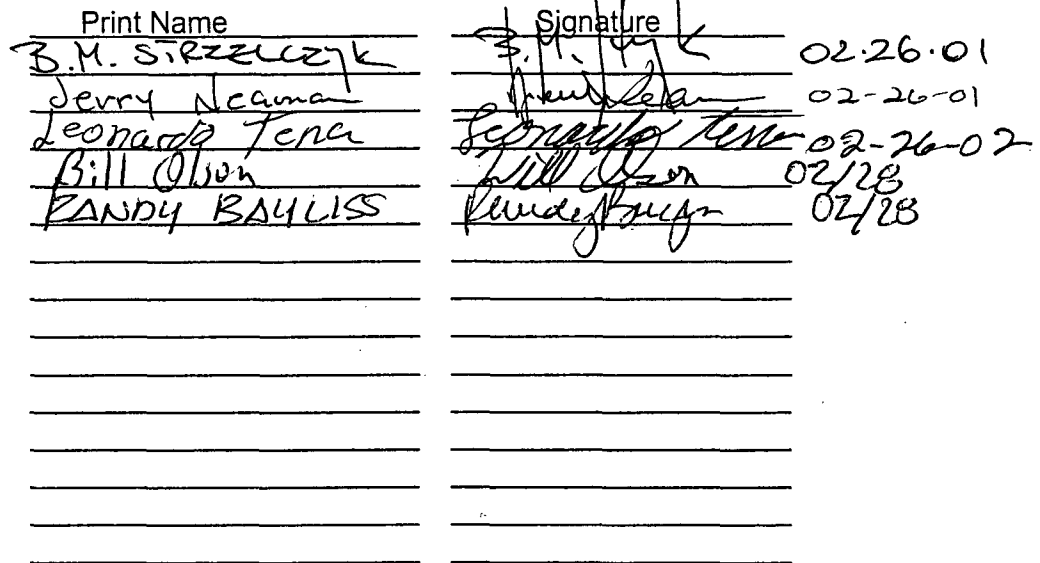 Print Name Signature
B.M. STRZELCZYK B.M. 02.26.01
Jerry Neaman 02-26-01
Leonardo Tena Leonardo Tena 02-26-02
Bill Olson Will Olson 02/28
RANDY BAYLISS 02/28